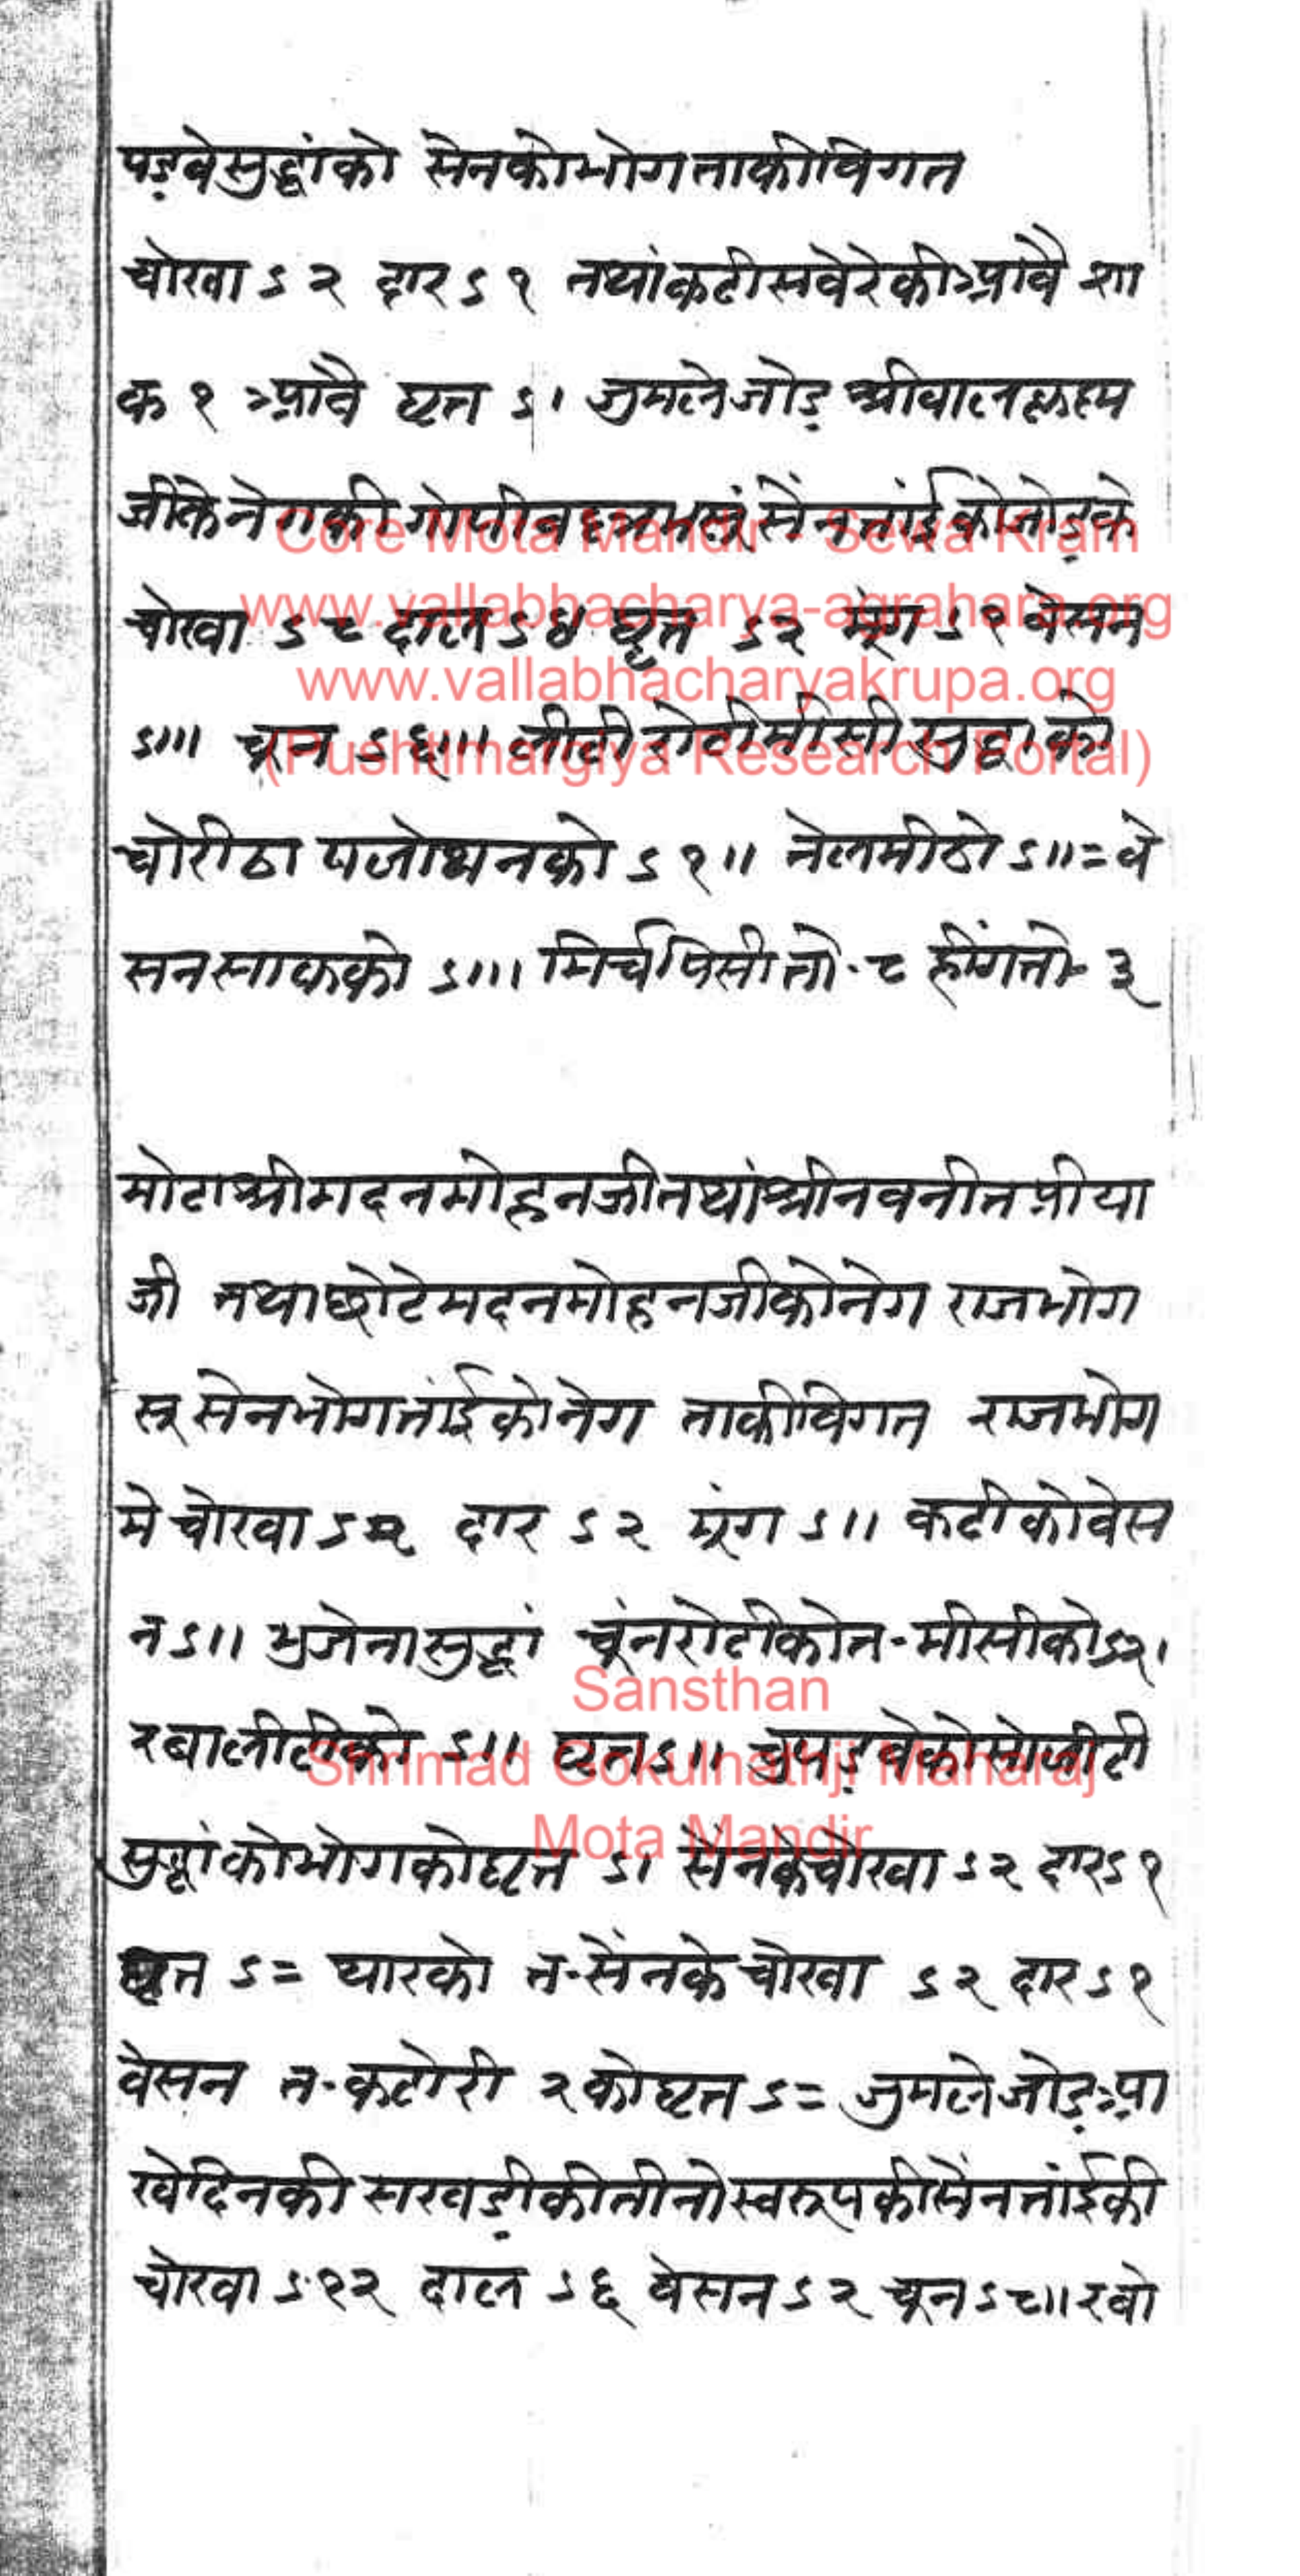 पड़वेसुद्धांको सेनकोभोगताकीविगत
चोखा ऽ २ दार ऽ १ तथांकढीसवेरेकीआवै शा
क १ आवै घृत ऽ। जुमलेजोड़ श्रीबालकृष्ण
जीकेनेगकी गोपीवल्लभसूं सेंनतांईकोजोड़के
चोखा ऽ ८ दाल ऽ ४ घृत ऽ २ मूंग ऽ १ वेसन
ऽ॥। चून ऽ ६॥। लीटी रोटीमीसीसुद्धाको
चोरीठा पजोथनको ऽ १॥ तेलमीठो ऽ॥= वे
सनसाकको ऽ॥। मिर्चपिसीतो·८ हींगतो·३
मोटाश्रीमदनमोहनजीतथांश्रीनवनीतप्रीया
जी तथाछोटेमदनमोहनजीकोनेग राजभोग
सूसेनभोगतांईकोनेग ताकीविगत राजभोग
मे चोखा ऽ २ दार ऽ २ मूंग ऽ॥ कढीकोवेस
न ऽ॥ भुजेनासुद्धां चूंनरोटीकोत·मीसीकोऽ२।
रवालीटीको ऽ॥ घृतऽ॥ चुपड़वेकोसोलीटी
सुद्धांकोभोगकोघृत ऽ। सेंनकेचोखा ऽ २ दारऽ १
घृत ऽ= थारको त·सेंनके चोखा ऽ २ दार ऽ १
वेसन त·कटोरी २ कोघृतऽ= जुमलेजोड़आ
खेदिनकी सखड़ीकीतीनोस्वरूपकीसेंनतांईकी
चोखा ऽ १२ दाल ऽ ६ वेसन ऽ २ चून ऽ ८॥ रवो
Core Mota Mandir - Sewa Kram
www.vallabhacharya-agrahara.org
www.vallabhacharyakrupa.org
(Pushtimargiya Research Portal)
Sansthan
Shrimad Gokulnathji Maharaj
Mota Mandir